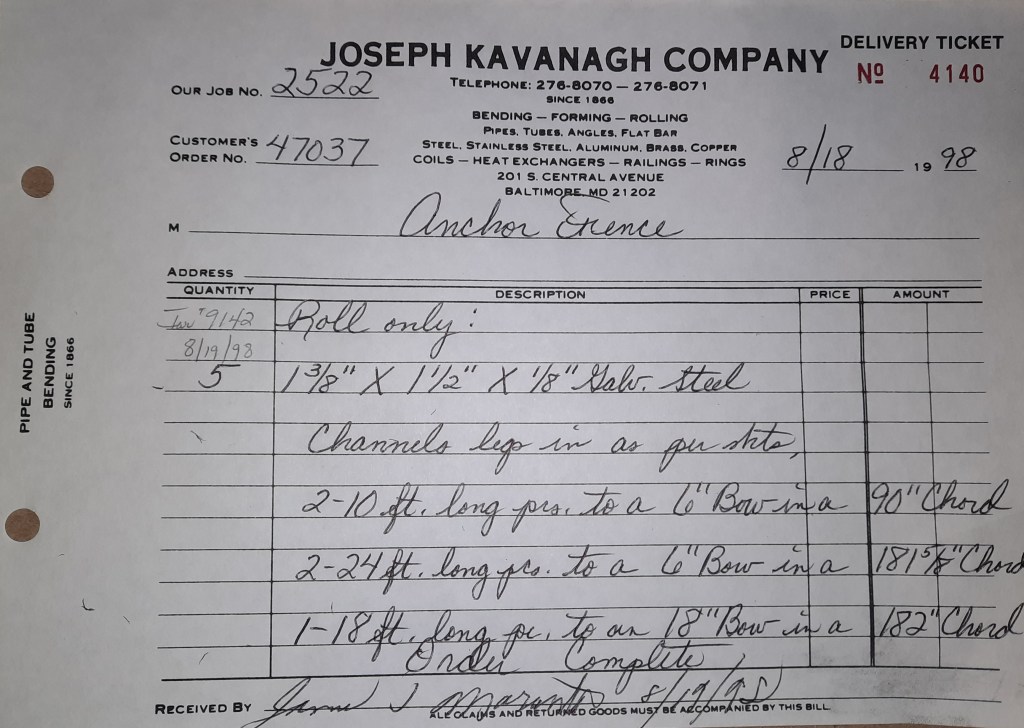 JOSEPH KAVANAGH COMPANY
DELIVERY TICKET
Nº 4140
OUR JOB NO. 2522
TELEPHONE: 276-8070 — 276-8071
SINCE 1866
BENDING — FORMING — ROLLING
PIPES, TUBES, ANGLES, FLAT BAR
CUSTOMER'S ORDER NO. 47037
STEEL, STAINLESS STEEL, ALUMINUM, BRASS, COPPER
COILS — HEAT EXCHANGERS — RAILINGS — RINGS
8/18 19 98
201 S. CENTRAL AVENUE
BALTIMORE, MD 21202
M Anchor
ADDRESS
QUANTITY DESCRIPTION PRICE AMOUNT
9142 Roll only:
8/19/98
5 1 3/8" X 1 1/2" X 1/8" Galv. Steel
Channels legs in as per skts,
2-10 ft. long pcs. to a 6" Bow in a 90" Chord
2-24 ft. long pcs. to a 6" Bow in a 181 5/8" Chord
1-18 ft. long pc. to an 18" Bow in a 182" Chord
Order Complete
RECEIVED BY 8/19/98
ALL CLAIMS AND RETURNED GOODS MUST BE ACCOMPANIED BY THIS BILL
PIPE AND TUBE
BENDING
SINCE 1866